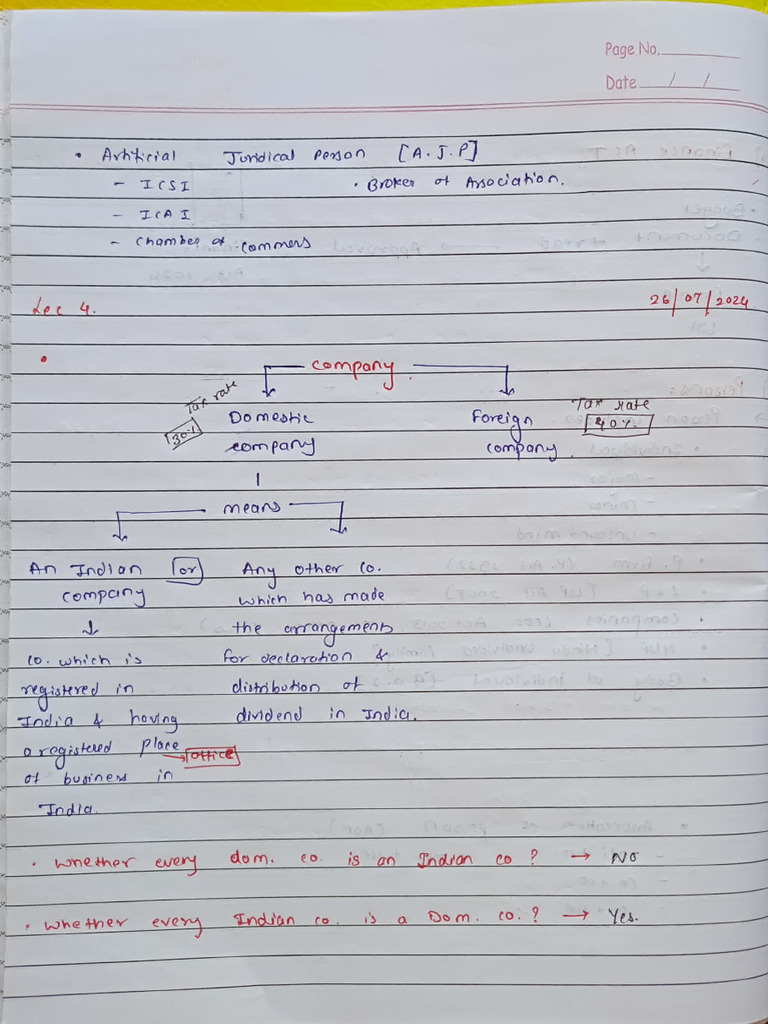 Page No.
Date / /
• Artificial Juridical Person [A.J.P]
- ICSI • Broker of Association.
- ICAI
- Chamber of Commers
Lec 4. 26/07/2024
• Company
Tax rate 30% Domestic company
Foreign company Tax rate 40%
means
An Indian company or Any other co.
which has made
the arrangements
for declaration &
distribution of
dividend in India.
↓
co. which is
registered in
India & having
a registered place → office
of business in
India.
• Whether every dom. co. is an Indian co? → No
• Whether every Indian co. is a Dom. co.? → Yes.